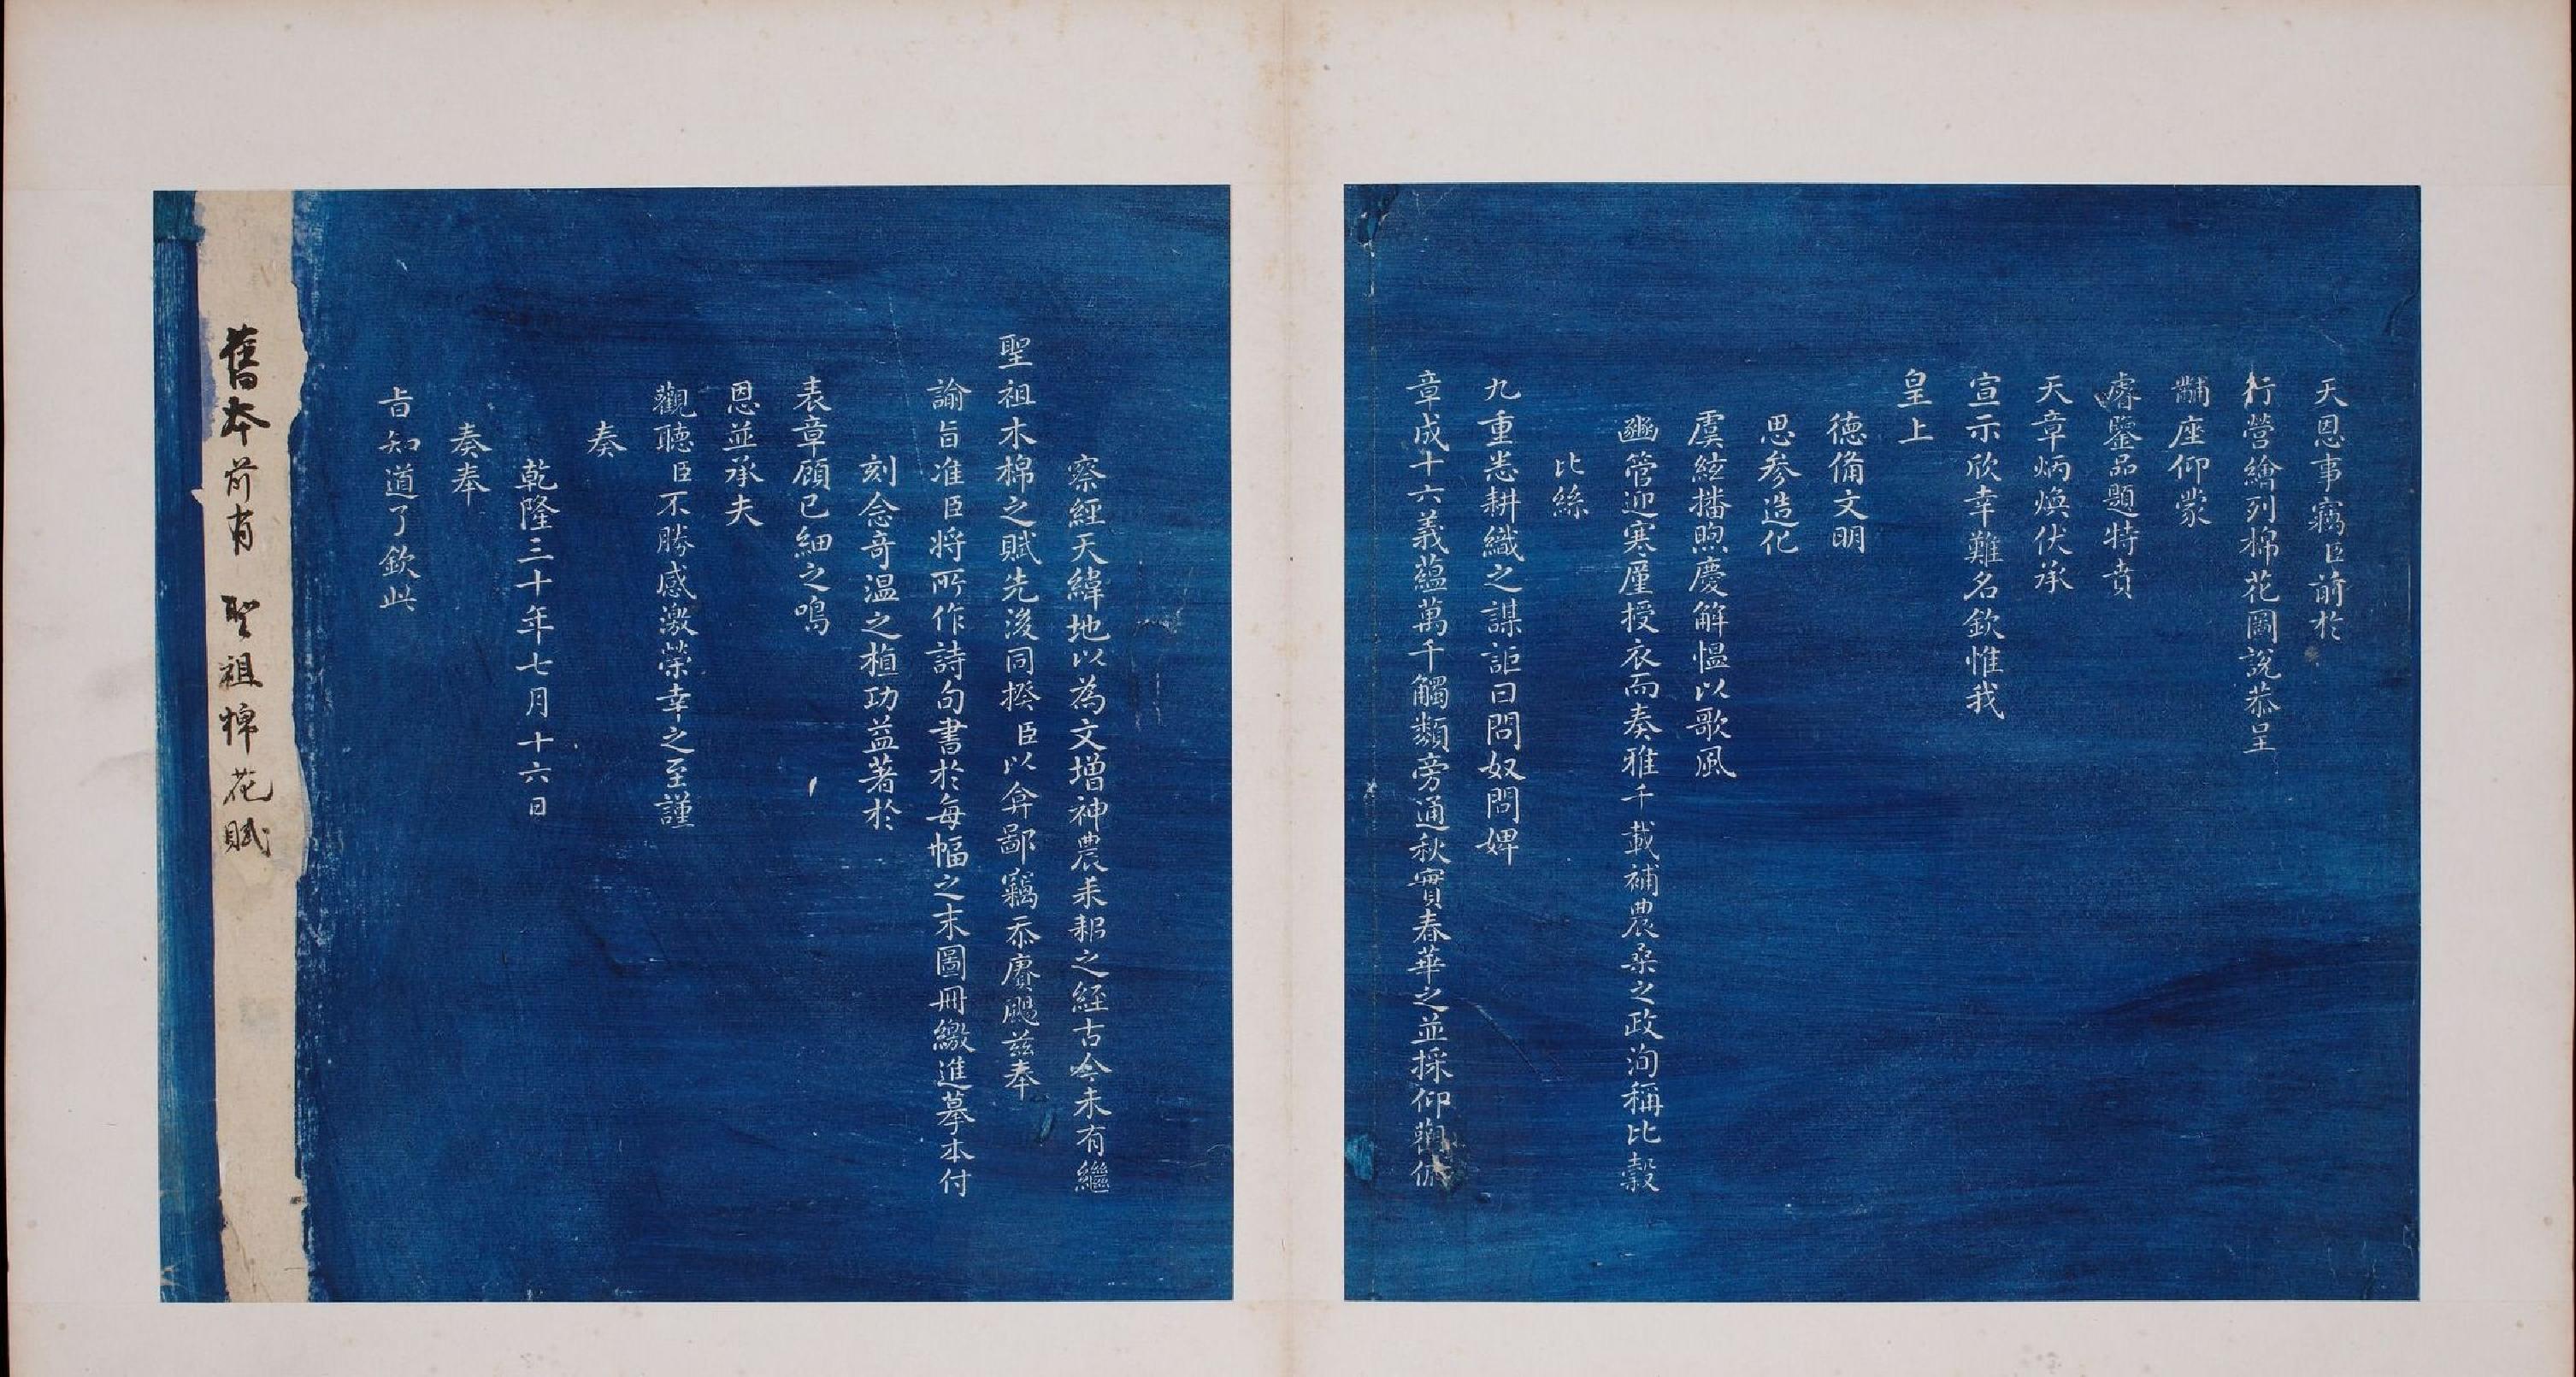 天恩事竊臣前於
行營繪列棉花圖說恭呈
黼座仰蒙
睿鑒品題特賁
天章炳煥伏承
宣示欣幸難名欽惟我
皇上
德備文明
思參造化
虞絃播煦慶解慍以歌風
豳管迎寒厪授衣而奏雅千載補農桑之政洵稱比縠
比絲
九重悉耕織之謀詎曰問奴問婢
章成十六義蘊萬千觸類旁通秋實春華之並採仰觀俯
察經天緯地以為文增神農耒耜之經古今未有繼
聖祖木棉之賦先後同揆臣以弇鄙竊忝賡颺茲奉
諭旨准臣將所作詩句書於每幅之末圖冊繳進摹本付
刻念奇溫之植功益著於
表章顧已細之鳴
恩並承夫
觀聽臣不勝感激榮幸之至謹
奏
乾隆三十年七月十六日
奏奉
旨知道了欽此
舊本前有 聖祖棉花賦